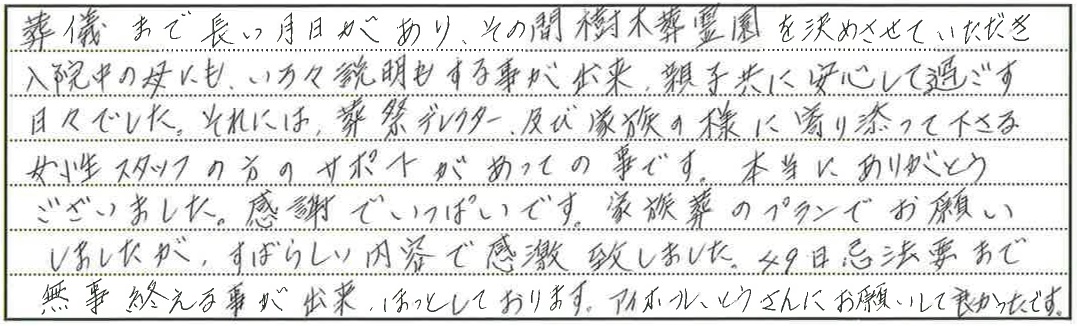 葬儀まで長い月日があり、その間樹木葬霊園を決めさせていただき
入院中の母にも、いろいろ説明もする事が出来、親子共に安心して過ごす
日々でした。それには、葬祭ディレクター、及び家族の様に寄り添って下さる
女性スタッフの方のサポートがあっての事です。本当にありがとう
ございました。感謝でいっぱいです。家族葬のプランでお願い
しましたが、すばらしい内容で感激致しました。49日忌法要まで
無事終える事が出来、ほっとしております。アイホールさんにお願いして良かったです。